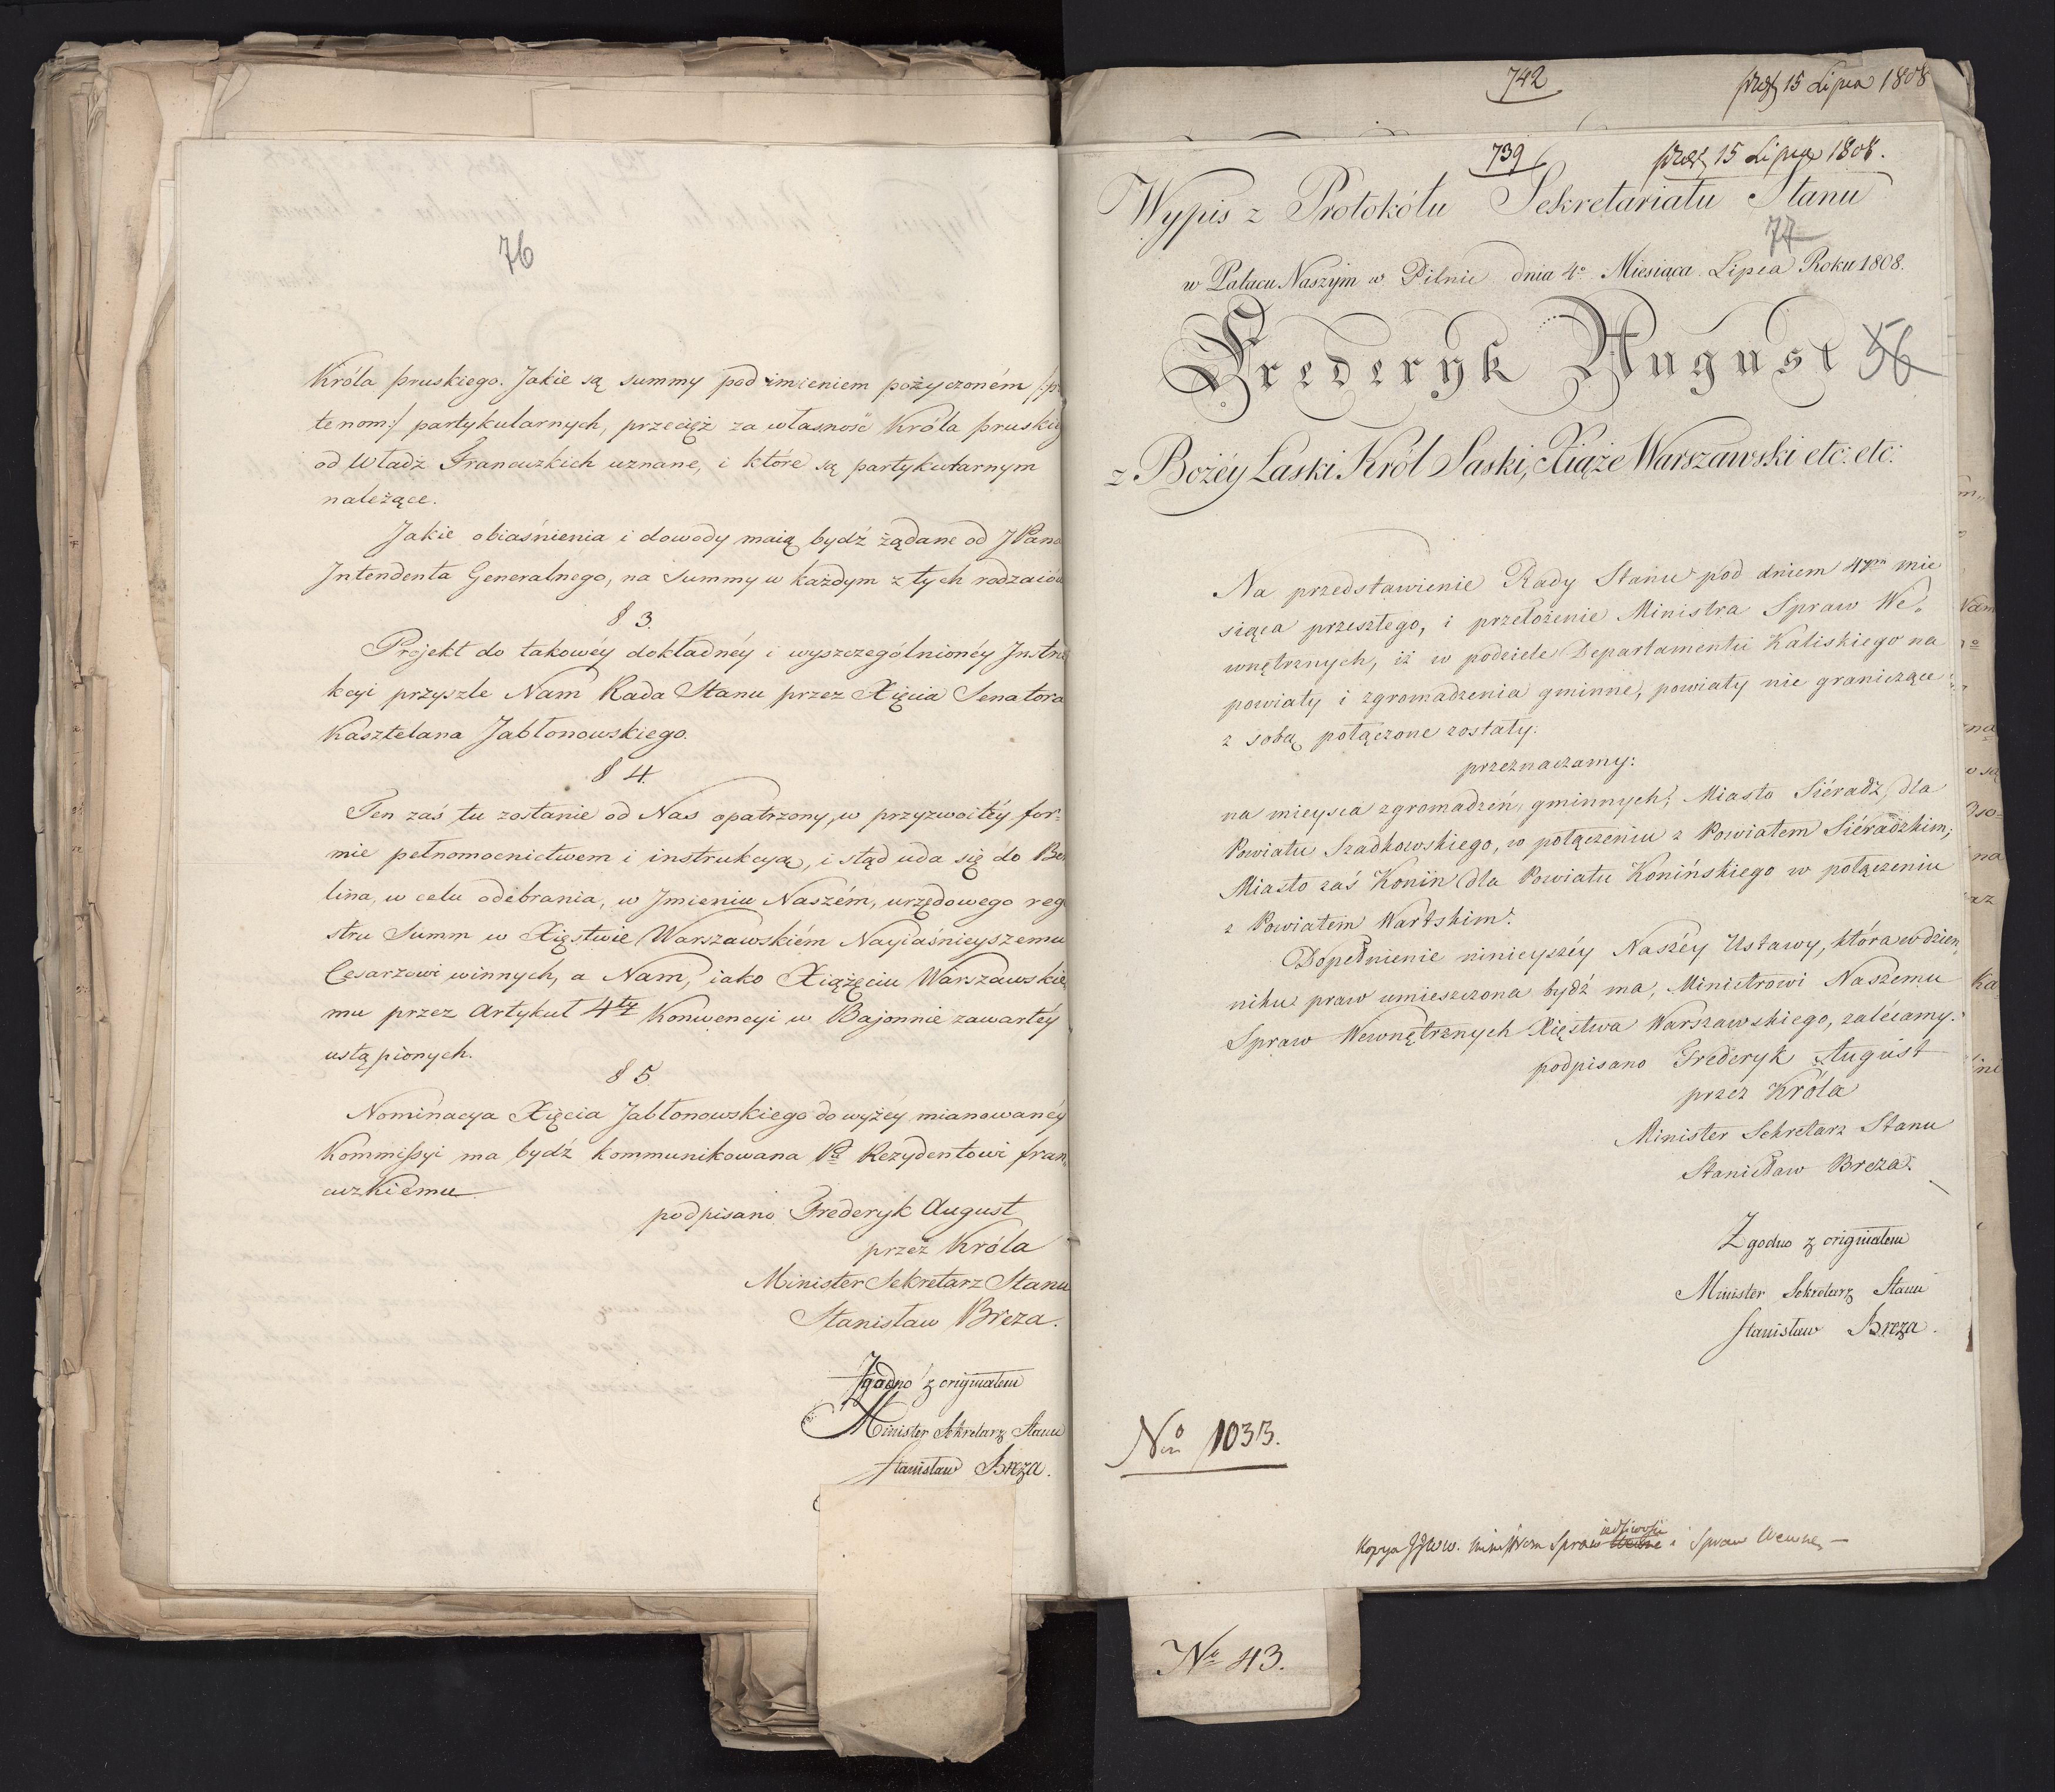 76
Króla pruskiego. Jakie są summy pod imieniem pożyczoném
te nom:/ partykularnych, przecięż za własność Króla pruskieg
od Władz Francuzkich uznane, i które są partykularnym
należące.
Jakie obiaśnienia i dowody maią bydź żądane od JPana
Intendenta Generalnego, na Summy w każdym z tych rodzaiów
§ 3.
Projekt do takowéy dokładnéy i wyszczególnionéy Instru
kcyi przyszle Nam Rada Stanu przez Xięcia Senatora
Kasztelana Jabłonowskiego.
§ 4.
Ten zaś tu zostanie od Nas opatrzony, w przyzwoitéy for-
mie pełnomocnictwem i instrukcyą, i stąd uda się do Ber
lina, w celu odebrania, w Jmieniu Naszém, urzędowego reg
stru Summ w Xięstwie Warszawskiém Nayiaśnieyszemu
Cesarzowi winnych, a Nam, iako Xiążęciu Warszawskie
mu przez Artykuł 4ty Konwencyi w Bajonnie zawartéy
ustąpionych.
§ 5.
Nominacya Xięcia Jabłonowskiego do wyżéy mianowanéy
Kommissyi ma bydź kommunikowana Pu Rezydentowi fran-
cuzkiemu
podpisano Frederyk August
przez Króla
Minister Sekretarz Stanu
Stanisław Breza.
Zgodno z originałem
Minister Sekretarz Stanu
Stanisław Breza.
742
15 Lipca 1808
739
15 Lipca 1808.
Wypis z Protokółu Sekretariatu Stanu
77
w Pałacu Naszym w Pilnie dnia 4o Miesiąca Lipca Roku 1808.
Frederyk August
56
z Bożéy Łaski Król Saski, Xiąże Warszawski etc: etc:
Na przedstawienie Rady Stanu pod dniem 4ym mie
siąca przeszłego, i przełożenie Ministra Spraw We-
wnętrznych, iż w podziele Departamentu Kaliskiego na
powiaty i zgromadzenia gminne, powiaty nie graniczące
z sobą połączone zostały:
przeznaczamy:
na mieysca zgromadzeń gminnych; Miasto Siéradz, dla
Powiatu Szadkowskiego, w połączeniu z Powiatem Siéradzkim;
Miasto zaś Konin dla Powiatu Konińskiego w połączeniu
z Powiatem Wartskim.
Dopełnienie ninieyszéy Naszéy Ustawy, która w dzien-
niku praw umieszczona bydź ma, Ministrowi Naszemu
Spraw Wewnętrznych Xięstwa Warszawskiego, zalécamy.
podpisano Frederyk August
przez Króla
Minister Sekretarz Stanu
Stanisław Breza.
Zgodno z originałem
Minister Sekretarz Stanu
Stanisław Breza.
No 1033.
Kopya JJWW. Ministrom Spraw i Spraw Wewnę
No 43.